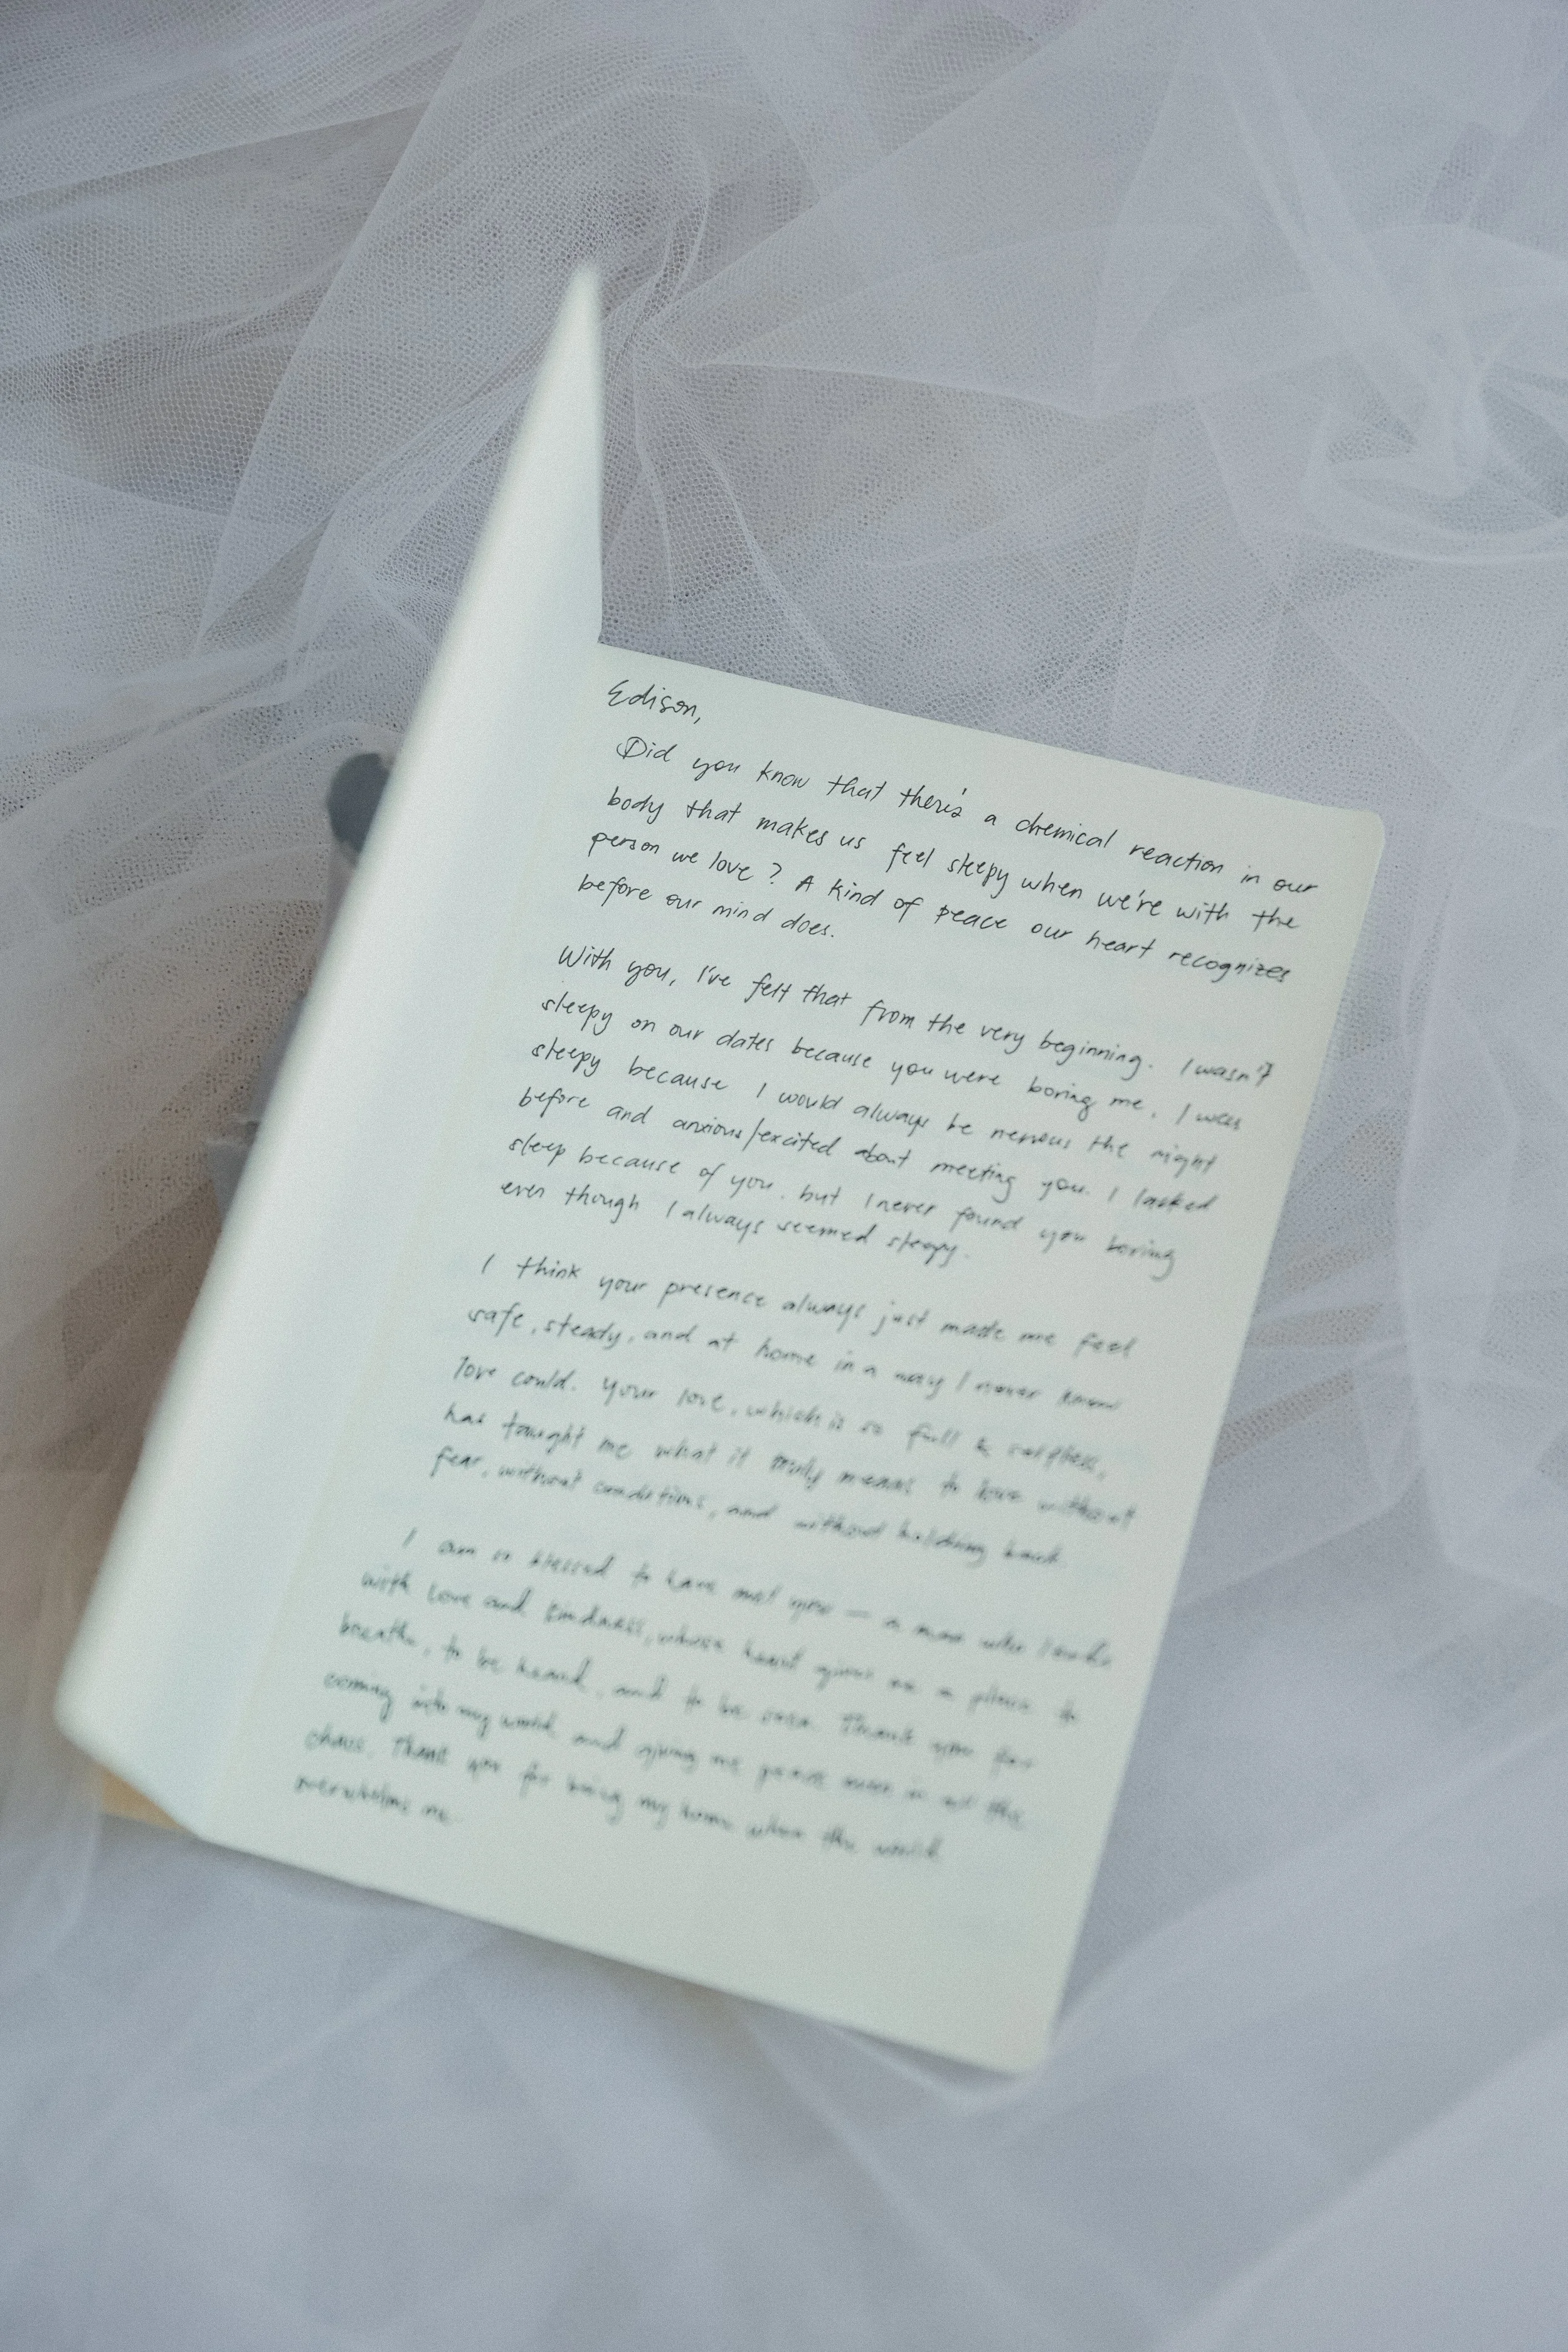 Edison,
Did you know that there's a chemical reaction in our
body that makes us feel sleepy when we're with the
person we love? A kind of peace our heart recognizes
before our mind does.
With you, I've felt that from the very beginning. I wasn't
sleepy on our dates because you were boring me. I was
sleepy because I would always be nervous the night
before and anxious/excited about meeting you. I lacked
sleep because of you. but I never found you boring
even though I always seemed sleepy.
I think your presence always just made me feel
safe, steady, and at home in a way I never knew
love could. Your love, which is so full & selfless,
has taught me what it truly means to love without
fear, without conditions, and without holding back.
I am so blessed to have met you — a man who leads
with love and kindness, whose heart gives me a place to
breathe, to be heard, and to be seen. Thank you for
coming into my world and giving me peace even in all the
chaos. Thank you for being my home when the world
overwhelms me.